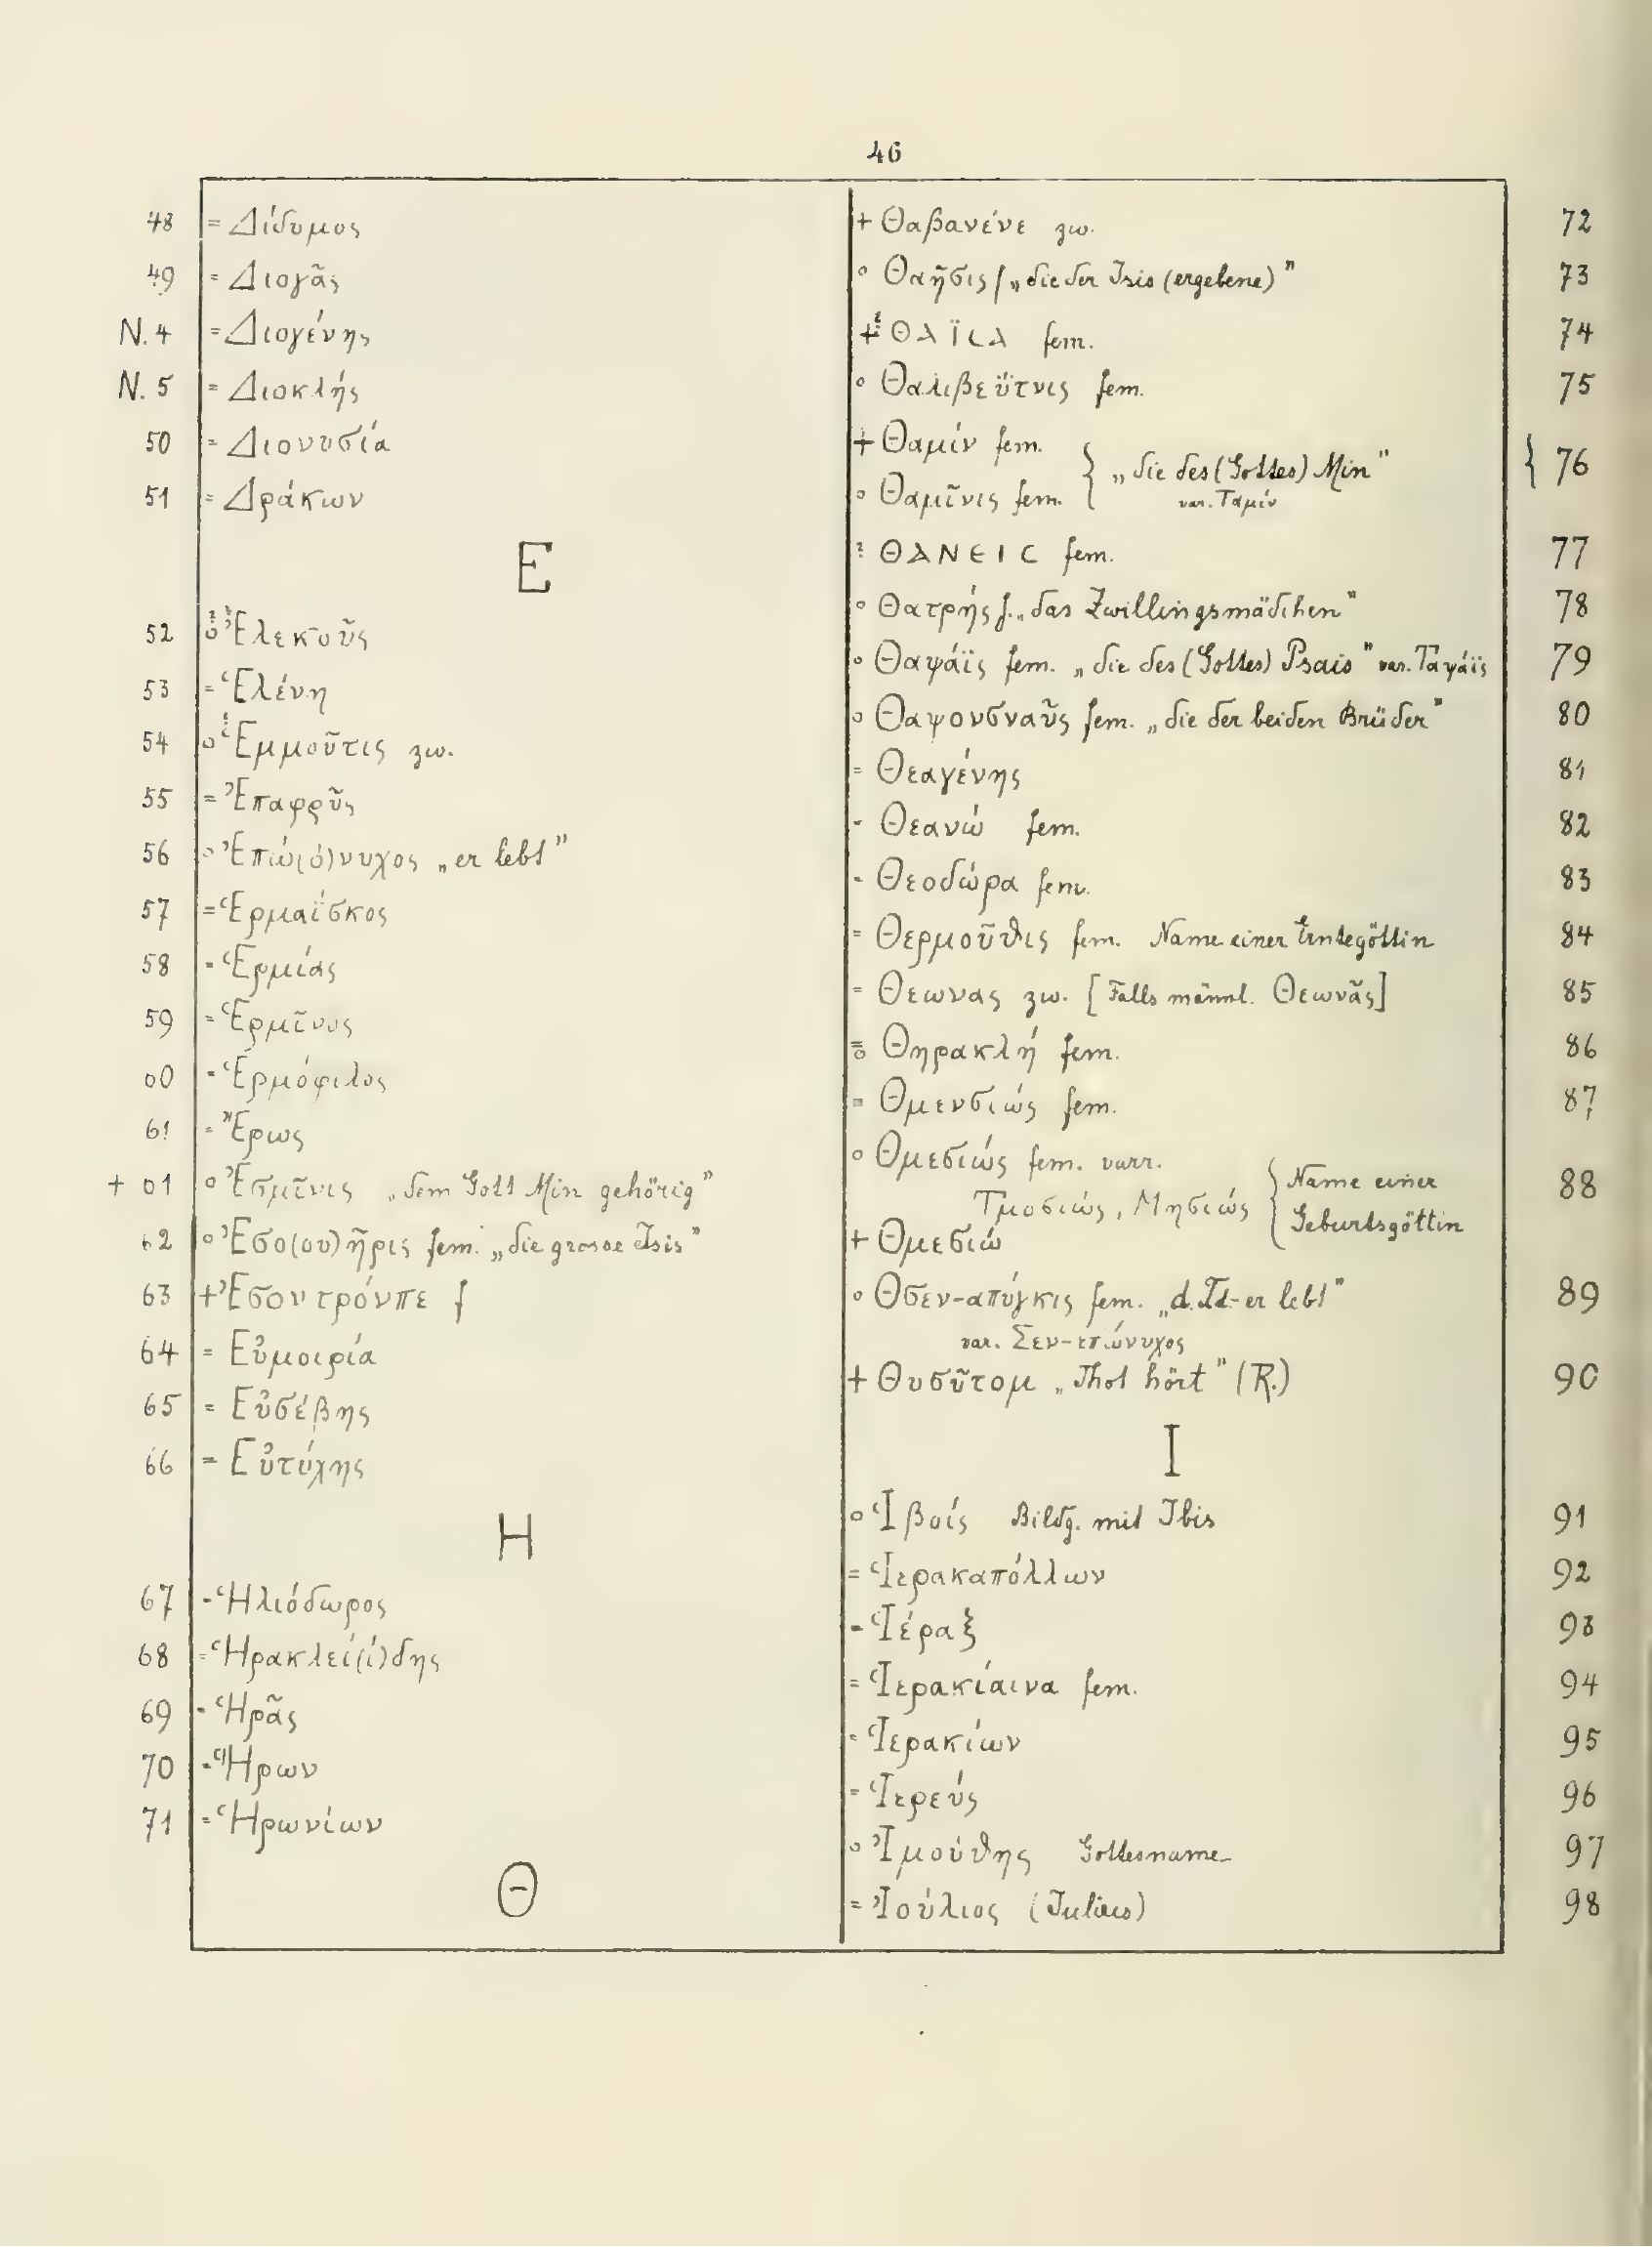 46
48 = Δίδυμος
49 = Διογᾶς
N. 4 = Διογένης
N. 5 = Διοκλής
50 = Διονυσία
51 = Δράκων
E
52 Ἐλεκοῦς
53 = Ἑλένη
54 o Ἑμμοῦτις zw.
55 = Ἐπαφρῦς
56 o Ἐπώ(ό)νυχος „er lebt"
57 = Ἑρμαΐσκος
58 = Ἑρμίας
59 = Ἑρμῖνος
60 = Ἑρμόφιλος
61 = Ἔρως
+ 61 o Ἐσμῖνις „dem Gott Min gehörig"
62 o Ἐσο(ου)ῆρις fem. „die grosse Isis"
63 + Ἐσοντρόνπε f
64 = Εὐμοιρία
65 = Εὐσέβης
66 = Εὐτύχης
H
67 = Ἡλιόδωρος
68 = Ἡρακλεί(ί)δης
69 = Ἡρᾶς
70 = Ἥρων
71 = Ἡρωνίων
Θ
+ Θαβανένε zw. 72
o Θαῆσις f „die der Isis (ergebene)" 73
+ ΘΑΪCΑ fem. 74
o Θαλιβεΰτνις fem. 75
+ Θαμίν fem.
o Θαμῖνις fem. } „die des (Gottes) Min" { 76
var. Ταμίν
? ΘΑΝΕΙC fem. 77
o Θατρής f. „das Zwillingsmädchen" 78
o Θαψάϊς fem. „die des (Gottes) Psais" var. Ταψάϊς 79
o Θαψονσναῦς fem. „die der beiden Brüder" 80
= Θεαγένης 81
= Θεανώ fem. 82
= Θεοδώρα fem. 83
= Θερμοῦθις fem. Name einer Erntegöttin 84
= Θεωνας zw. [Falls männl. Θεωνᾶς] 85
Θηρακλή fem. 86
= Θμενσιώς fem. 87
o Θμεσιώς fem. varr.
Τμοσιώς, Μησιώς { Name einer Geburtsgöttin 88
+ Θμεσιώ
o Θσεν-απύγκις fem. „d. Td.-er lebt" 89
var. Σεν-επώνυχος
+ Θυσῦτομ „Thot hört" (R.) 90
I
o Ἱβοίς Bildg. mit Ibis 91
= Ἱερακαπόλλων 92
= Ἱέραξ 93
= Ἱερακίαινα fem. 94
= Ἱερακίων 95
= Ἱερεύς 96
o Ἰμούθης Gottesname 97
= Ἰούλιος (Julius) 98